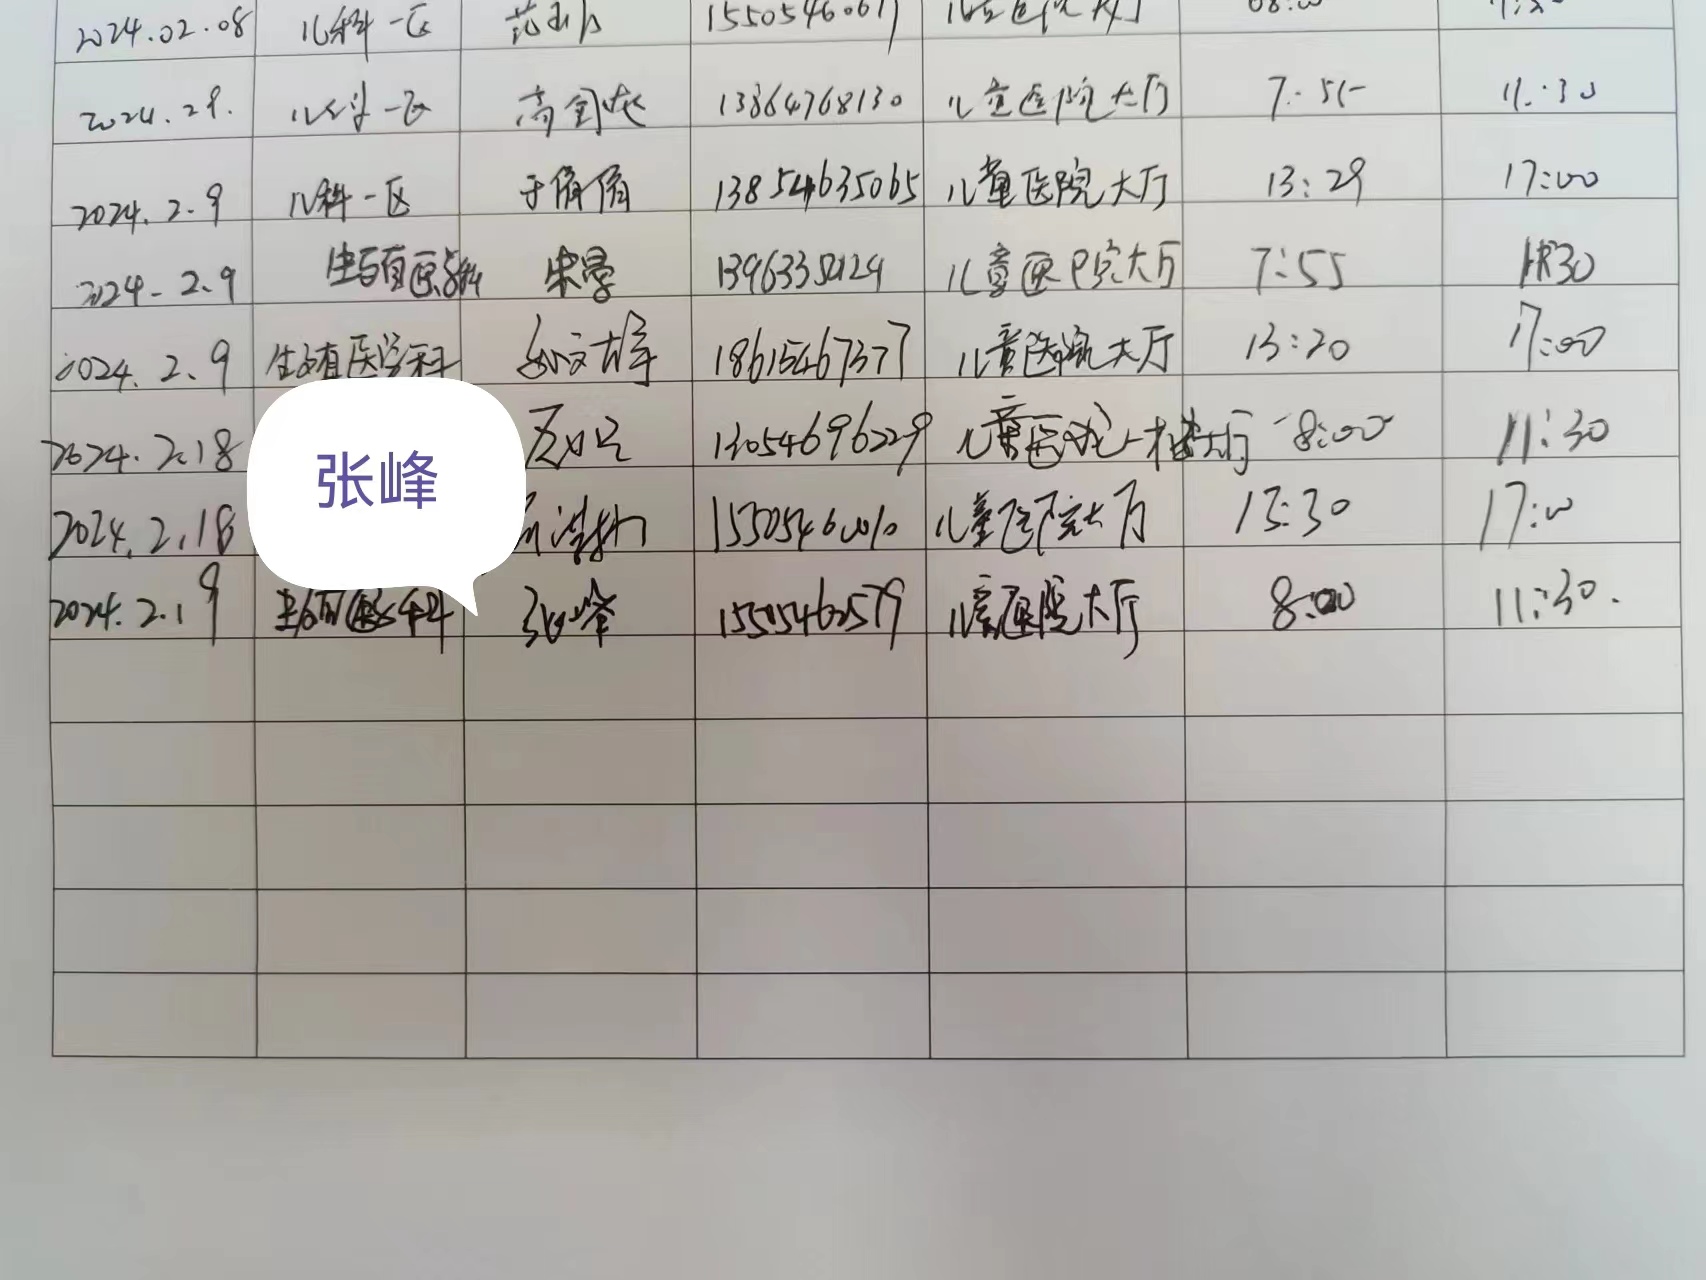 2024.02.08 儿科一区 1550546061 大厅 08:00
2024.2.9. 儿科一区 高 13864768130 儿童医院大厅 7:55 11:30
2024.2.9 儿科一区 于倩倩 13854635065 儿童医院大厅 13:29 17:00
2024.2.9 生殖医学科 宋 儿童医院大厅 7:55 11:30
2024.2.9 生殖医学科 18615467377 儿童医院大厅 13:20 17:00
2024.2.18 13054696229 儿童医院一楼大厅 8:00 11:30
张峰
2024.2.18 儿童医院大厅 13:30 17:00
2024.2.19 生殖医学科 张峰 15505460579 儿童医院大厅 8:00 11:30.